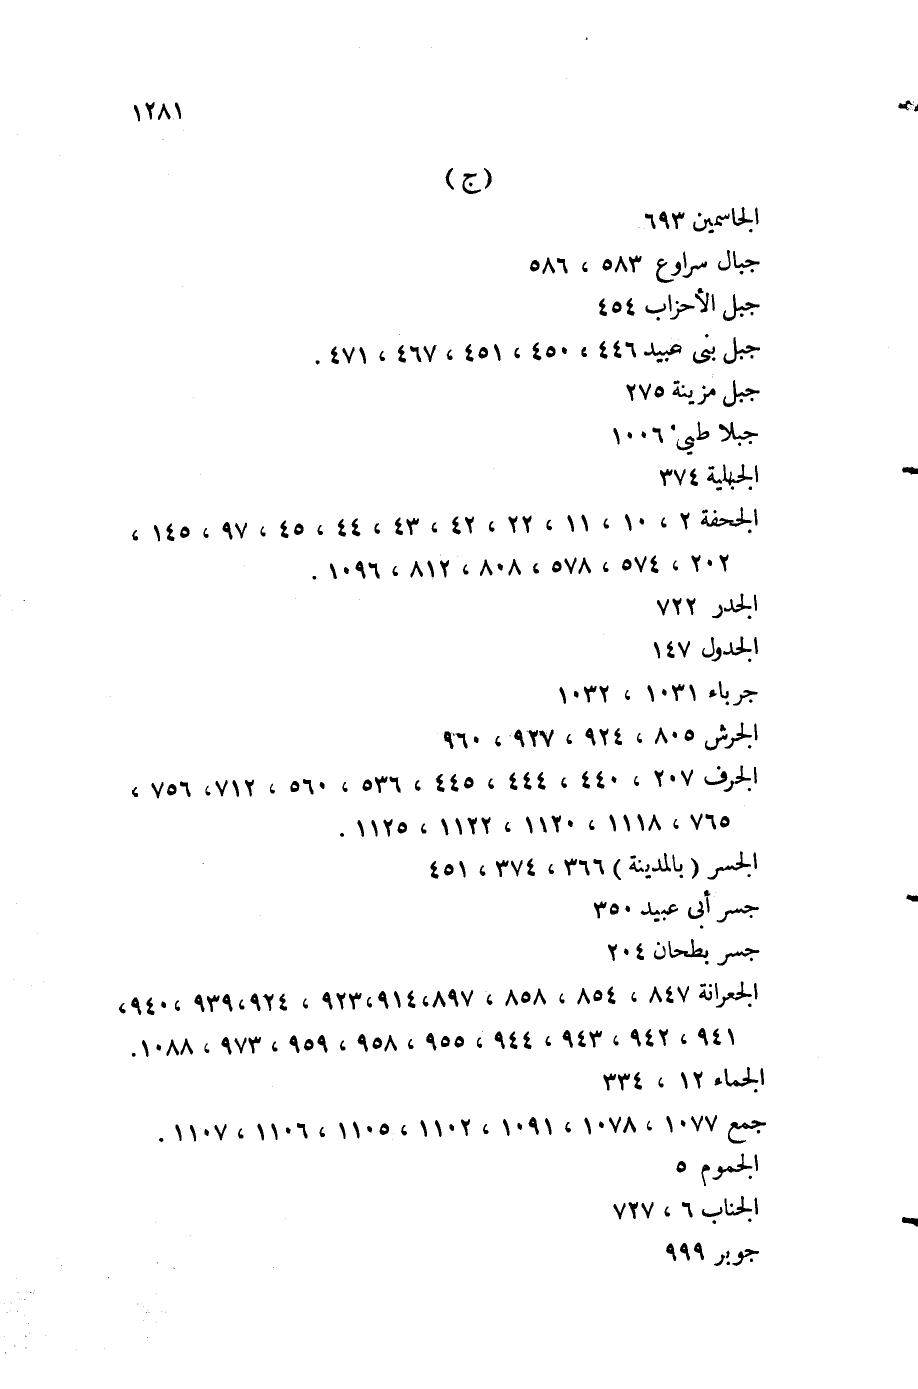 ١٢٨١
(ج)
الجاسمين ٦٩٣
جبال سراوع ٥٨٣ ، ٥٨٦
جبل الأحزاب ٤٥٤
جبل بنى عبيد ٤٤٦ ، ٤٥٠ ، ٤٥١ ، ٤٦٧ ، ٤٧١ .
جبل مزينة ٢٧٥
جبلا طيء ١٠٠٦
الجبلية ٣٧٤
الجحفة ٢ ، ١٠ ، ١١ ، ٢٢ ، ٤٢ ، ٤٣ ، ٤٤ ، ٤٥ ، ٩٧ ، ١٤٥ ،
٢٠٢ ، ٥٧٤ ، ٥٧٨ ، ٨٠٨ ، ٨١٢ ، ١٠٩٦ .
الجدر ٧٢٢
الجدول ١٤٧
جرباء ١٠٣١ ، ١٠٣٢
الجرش ٨٠٥ ، ٩٢٤ ، ٩٢٧ ، ٩٦٠
الجرف ٢٠٧ ، ٤٤٠ ، ٤٤٤ ، ٤٤٥ ، ٥٣٦ ، ٥٦٠ ، ٧١٢، ٧٥٦ ،
٧٦٥ ، ١١١٨ ، ١١٢٠ ، ١١٢٢ ، ١١٢٥ .
الجسر ( بالمدينة ) ٣٦٦ ، ٣٧٤ ، ٤٥١
جسر أبى عبيد ٣٥٠
جسر بطحان ٢٠٤
الجعرانة ٨٤٧ ، ٨٥٤ ، ٨٥٨ ، ٨٩٧،٩١٤،٩٢٣ ، ٩٢٤،٩٣٩ ،٩٤٠،
٩٤١ ، ٩٤٢ ، ٩٤٣ ، ٩٤٤ ، ٩٥٥ ، ٩٥٨ ، ٩٥٩ ، ٩٧٣ ، ١٠٨٨.
الجماء ١٢ ، ٣٣٤
جمع ١٠٧٧ ، ١٠٧٨ ، ١٠٩١ ، ١١٠٢ ، ١١٠٥ ، ١١٠٦ ، ١١٠٧ .
الجموم ٥
الجناب ٦ ، ٧٢٧
جوبر ٩٩٩